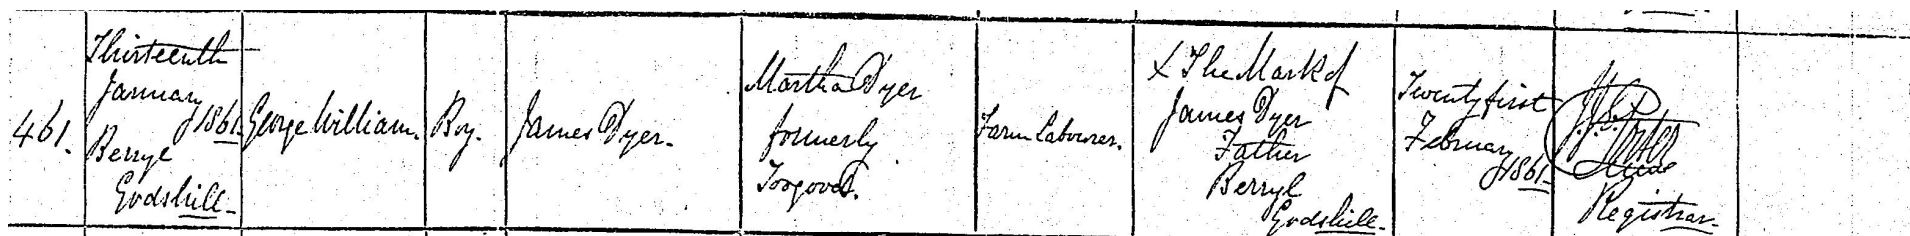 461.
Thirteenth
January
1861
Berryl
Godshill.
George William.
Boy.
James Dyer.
Martha Dyer
formerly
Toogood.
Farm Labourer.
X The Mark of
James Dyer
Father
Berryl
Godshill.
Twenty first
February
1861
Registrar.